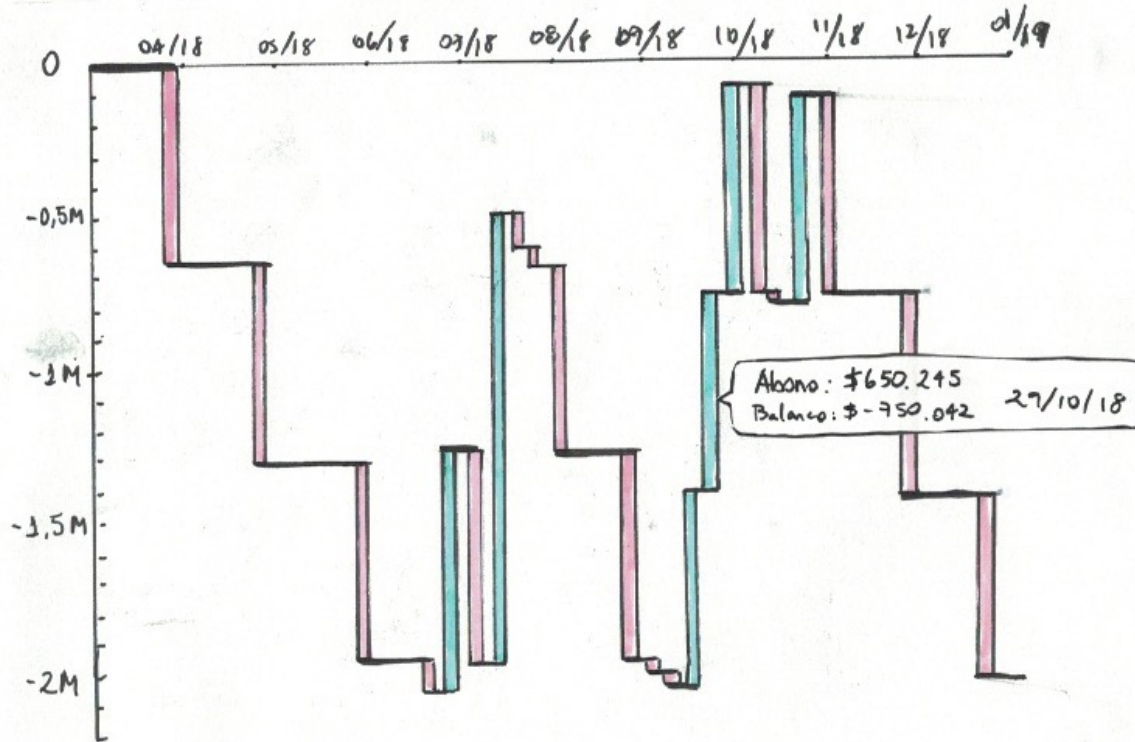 04/18 05/18 06/18 03/18 08/18 09/18 10/18 11/18 12/18 01/19
0
-0,5M
-1M
-1,5M
-2M
Abono: $650.245
Balance: $-750.042
29/10/18